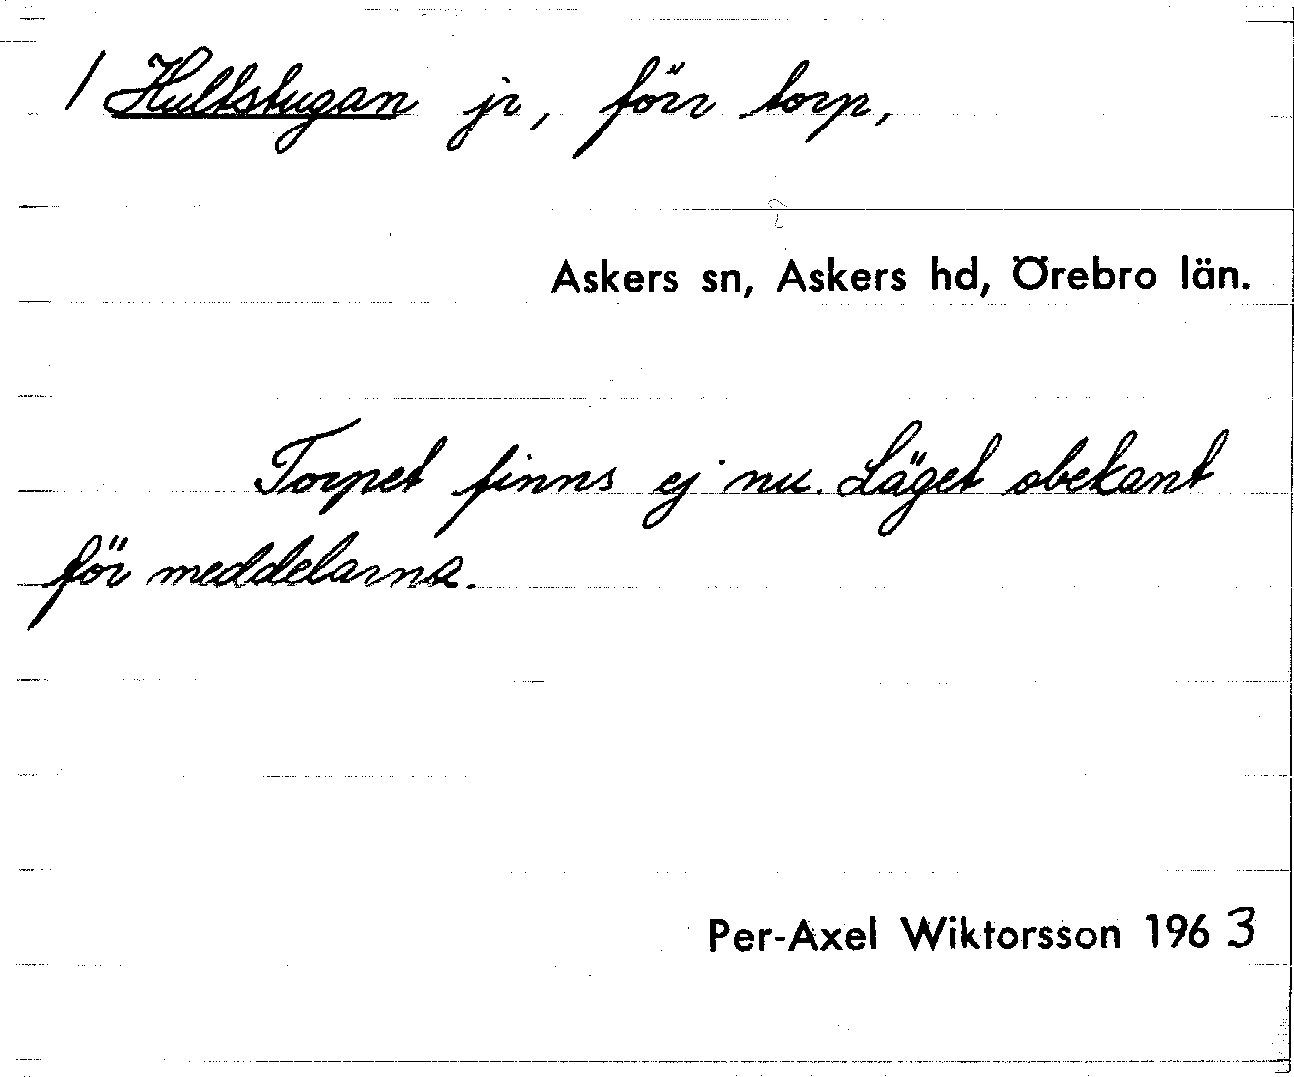 / Hultstugan jr, förr torp,
Askers sn, Askers hd, Örebro län.
Torpet finns ej nu. Läget obekant
för meddelarna.
Per-Axel Wiktorsson 1963